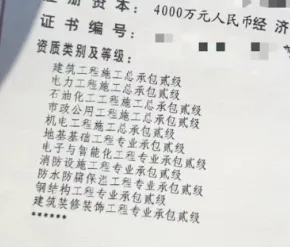 注册资本：4000万元人民币 经济
证书编号：
资质类别及等级：
建筑工程施工总承包贰级
电力工程施工总承包贰级
石油化工工程施工总承包贰级
市政公用工程施工总承包贰级
机电工程施工总承包贰级
地基基础工程专业承包贰级
电子与智能化工程专业承包贰级
消防设施工程专业承包贰级
防水防腐保温工程专业承包贰级
钢结构工程专业承包贰级
建筑装修装饰工程专业承包贰级
******